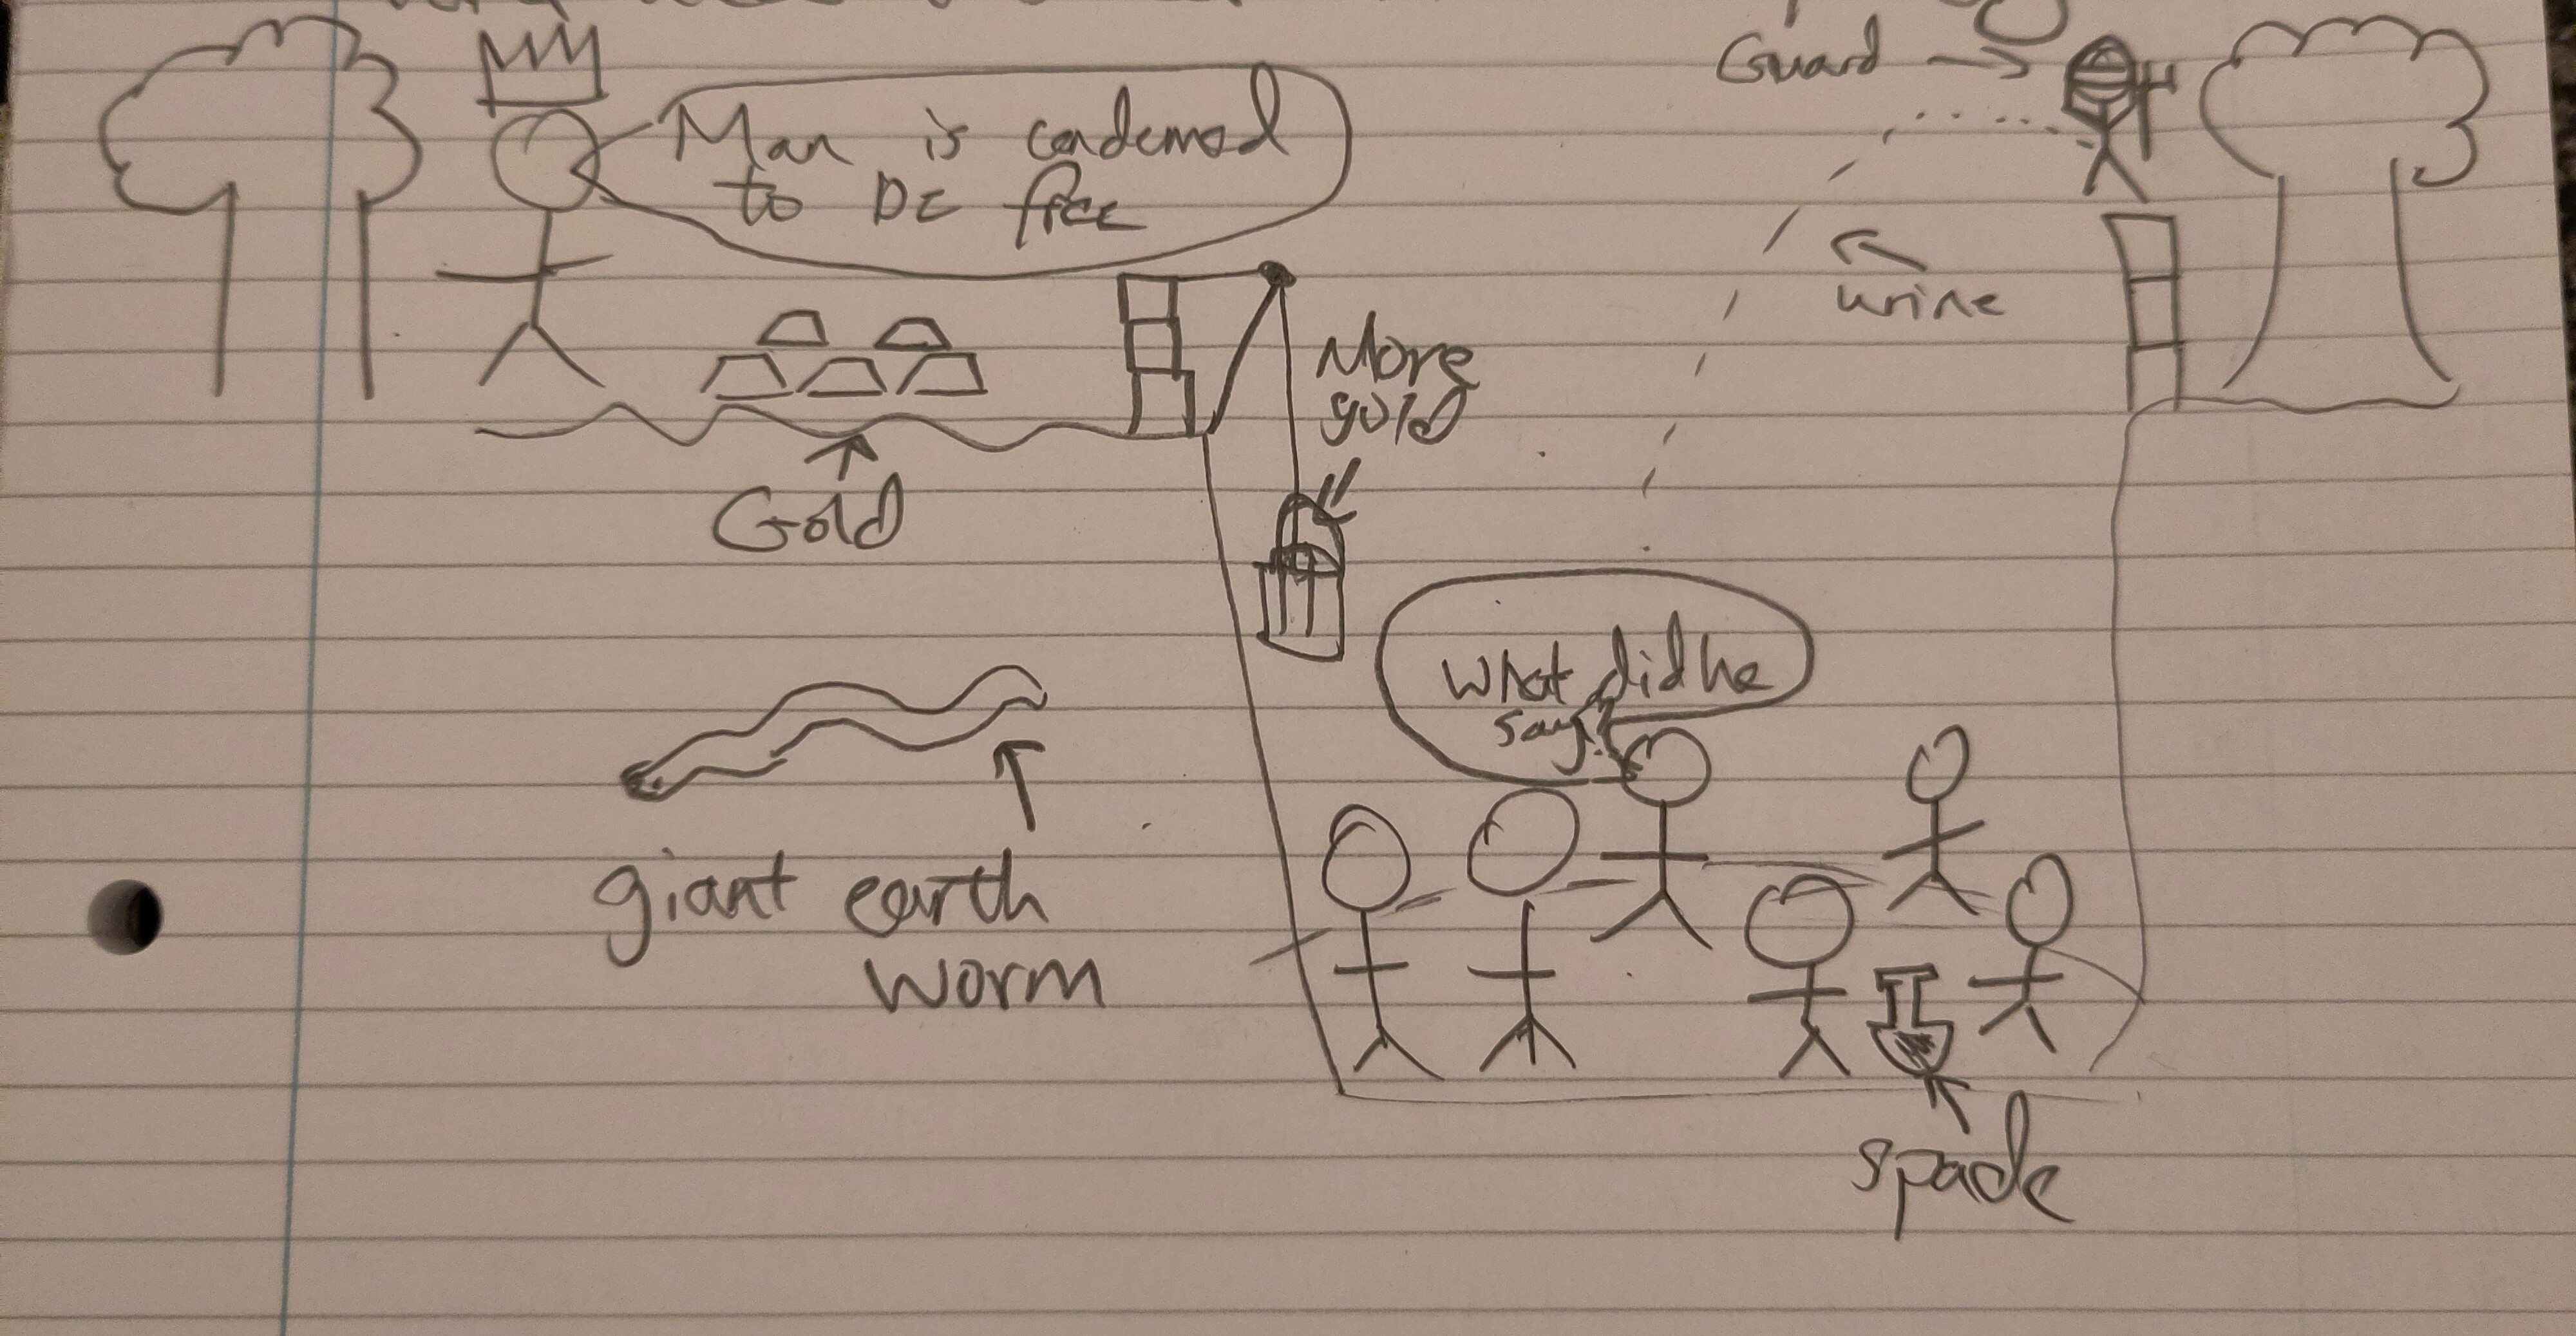 Guard
Man is condemned
to BE free
urine
More
gold
Gold
What did he
say?
giant earth
worm
spade